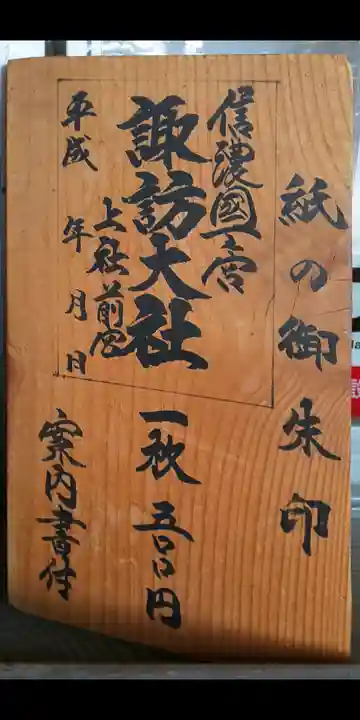 紙の御朱印
信濃國一宮
諏訪大社
上社前宮
平成 年 月 日
一枚 五〇〇円
案内書付